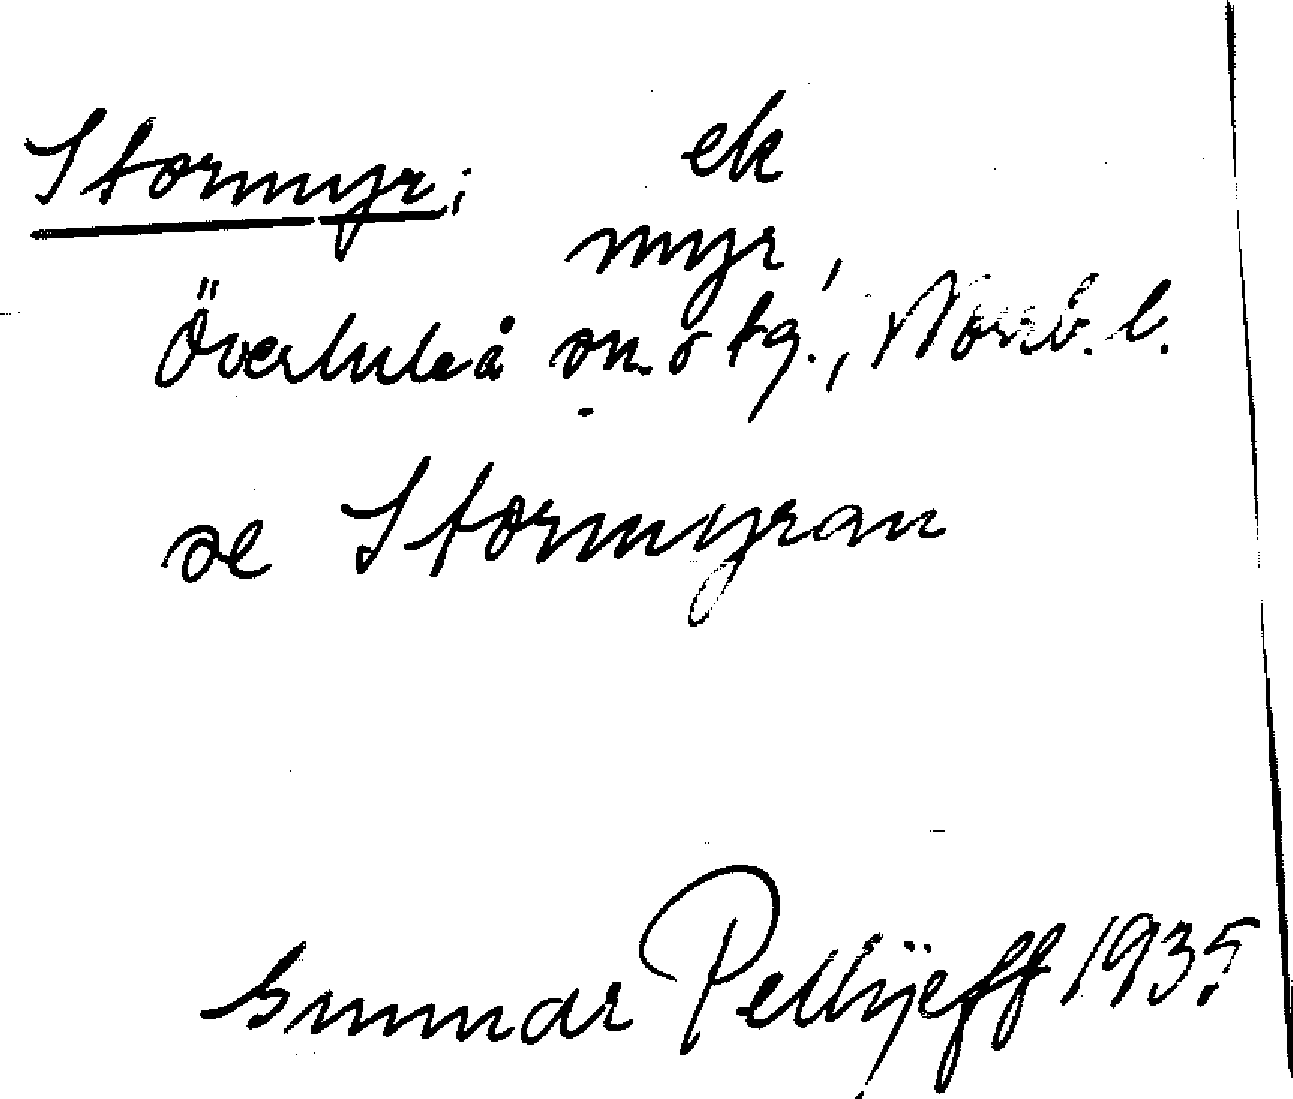 Stormyr; ek
myr,
Överluleå sn. o tg., Norrb. l.
se Stormyran
Gunnar Pellijeff 1935